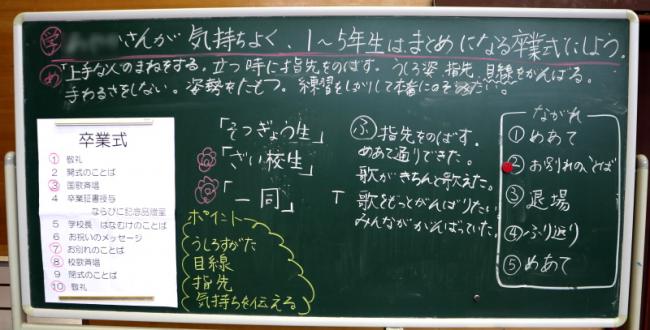 学 さんが気持ちよく、1~5年生はまとめになる卒業式にしよう。
め 「上手な人のまねをする。立つ時に指先をのばす。うしろ姿、指先、目線をがんばる。
手わるさをしない。姿勢をたもつ。練習をしっかりして本番にのぞみたい。」
卒業式
① 敬礼
2 開式のことば
③ 国歌斉唱
4 卒業証書授与
ならびに記念品贈呈
5 学校長 はなむけのことば
6 お祝いのメッセージ
⑦ お別れのことば
⑧ 校歌斉唱
9 閉式のことば
⑩ 敬礼
「そつぎょう生」
「ざい校生」
「一同」
ポイント
うしろすがた
目線
指先
気持ちを伝える
ふ 指先をのばす。
めあて通りできた。
歌がきちんと歌えた。
T 歌をもっとがんばりたい
みんながかんばっていた。
ながれ
① めあて
② お別れのことば
③ 退場
④ ふり返り
⑤ めあて